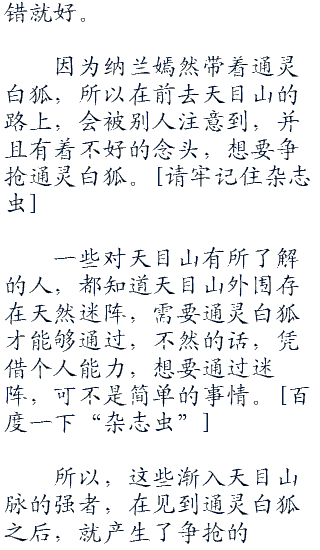 错就好。
因为纳兰嫣然带着通灵
白狐，所以在前去天目山的
路上，会被别人注意到，并
且有着不好的念头，想要争
抢通灵白狐。[请牢记住杂志
虫]
一些对天目山有所了解
的人，都知道天目山外围存
在天然迷阵，需要通灵白狐
才能够通过，不然的话，凭
借个人能力，想要通过迷
阵，可不是简单的事情。[百
度一下“杂志虫”]
所以，这些渐入天目山
脉的强者，在见到通灵白狐
之后，就产生了争抢的